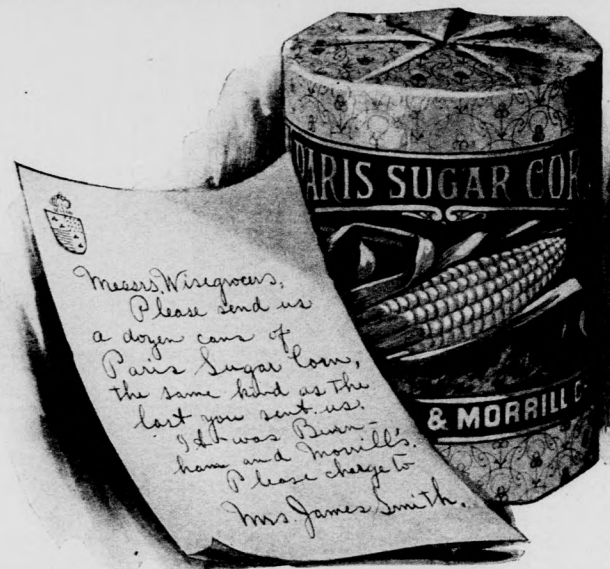 PARIS SUGAR COR
& MORRILL C
Messrs. Wisegrocers,
Please send us
a dozen cans of
Paris Sugar Corn,
the same kind as the
last you sent us.
It was Burn-
ham and Morrill's.
Please charge to
Mrs. James Smith.